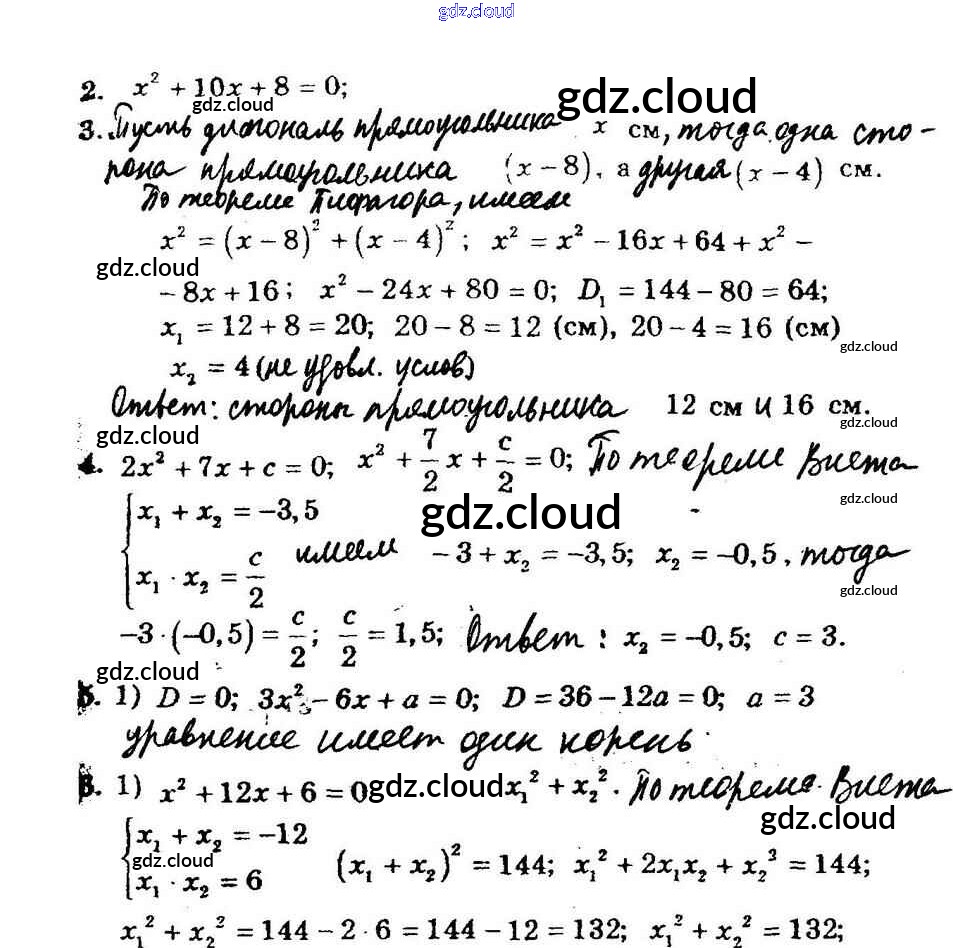 gdz.cloud
2. x² + 10x + 8 = 0;
gdz.cloud gdz.cloud
3. Пусть диагональ прямоугольника x см, тогда одна сто-
рона прямоугольника (x − 8), а другая (x − 4) см.
По теореме Пифагора, имеем
x² = (x − 8)² + (x − 4)²; x² = x² − 16x + 64 + x² −
gdz.cloud
− 8x + 16; x² − 24x + 80 = 0; D₁ = 144 − 80 = 64;
x₁ = 12 + 8 = 20; 20 − 8 = 12 (см), 20 − 4 = 16 (см)
gdz.cloud
x₂ = 4 (не удовл. услов)
Ответ: стороны прямоугольника 12 см и 16 см.
gdz.cloud gdz.cloud
4. 2x² + 7x + c = 0; x² + 7/2 x + c/2 = 0; По теореме Виета
{ x₁ + x₂ = −3,5
gdz.cloud gdz.cloud
x₁ · x₂ = c/2 имеем −3 + x₂ = −3,5; x₂ = −0,5, тогда
gdz.cloud
−3 · (−0,5) = c/2; c/2 = 1,5; Ответ: x₂ = −0,5; c = 3.
gdz.cloud
5. 1) D = 0; 3x² − 6x + a = 0; D = 36 − 12a = 0; a = 3
уравнение имеет один корень.
6. 1) x² + 12x + 6 = 0 gdz.cloud x₁² + x₂². По теореме Виета
gdz.cloud
{ x₁ + x₂ = −12
gdz.cloud
x₁ · x₂ = 6 (x₁ + x₂)² = 144; x₁² + 2x₁x₂ + x₂³ = 144;
x₁² + x₂² = 144 − 2 · 6 = 144 − 12 = 132; x₁² + x₂² = 132;